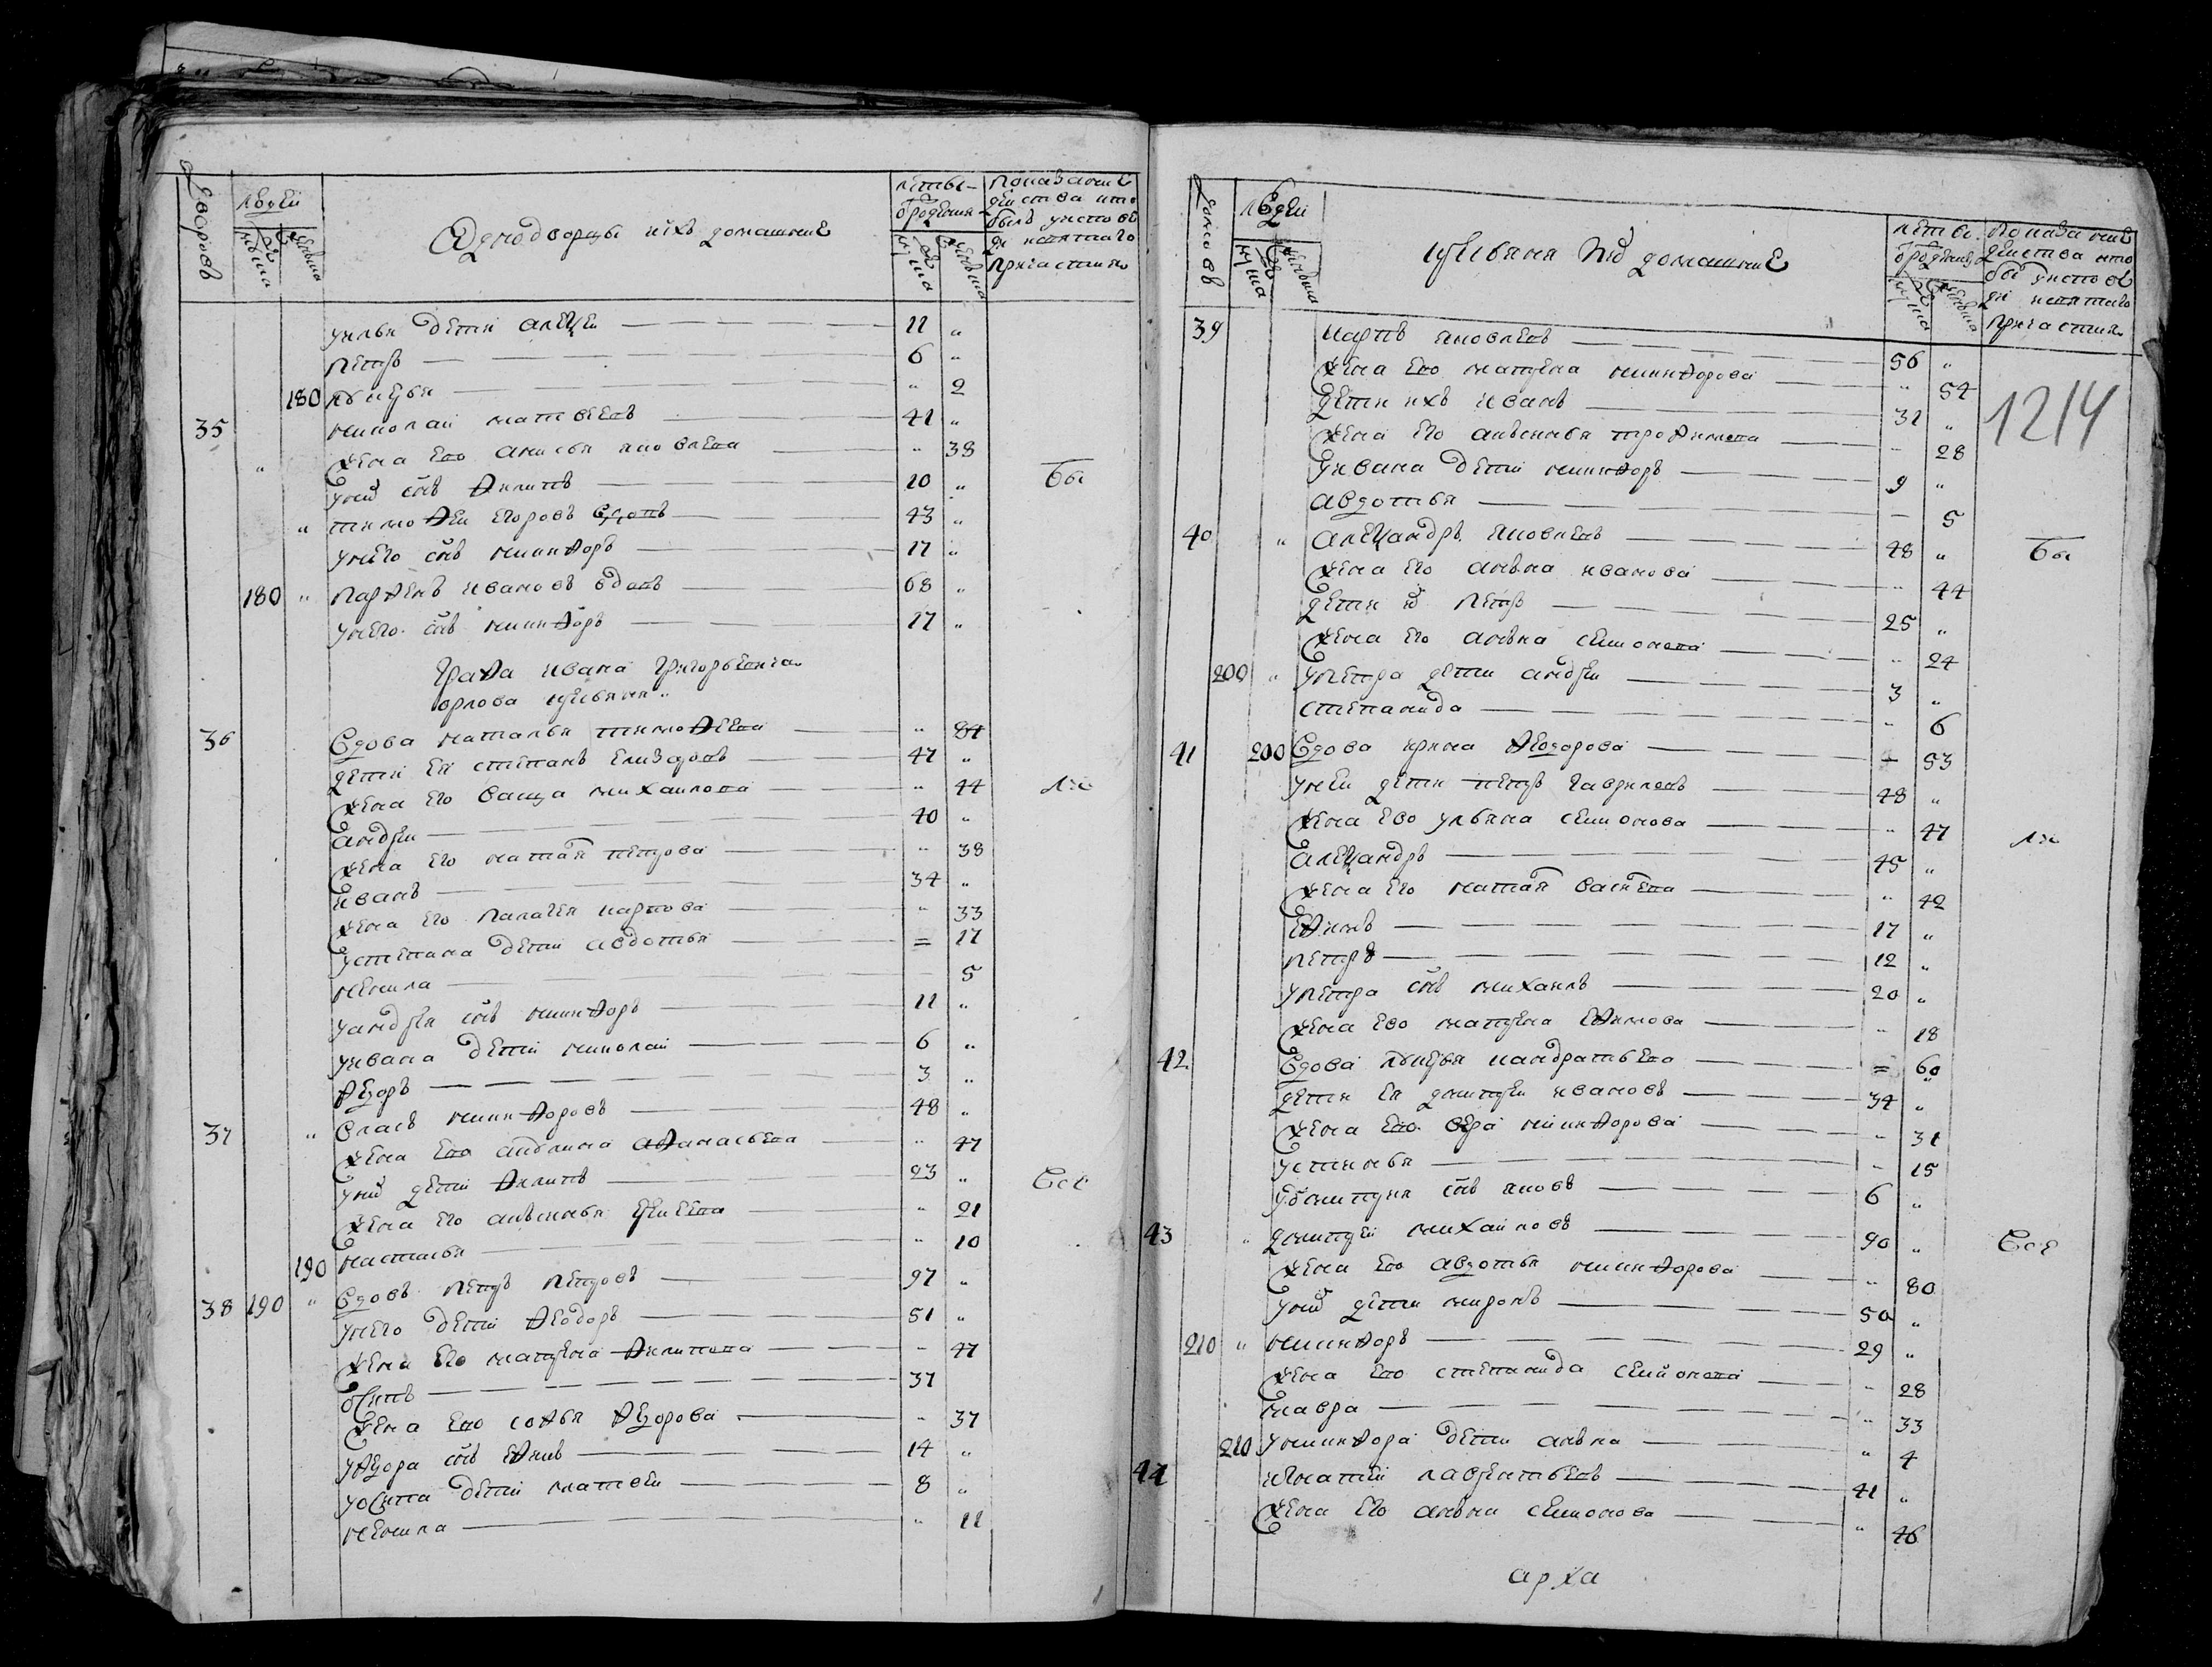 дворовъ
людей
мужска
женска
Однодворцы ихъ домашние
лѣты
отрождения
мужска
женска
Показание
действа кто
былъ уисповѣ
ди исвятаго
причастия
уилья дети алеѯей 11 „
петръ 6 „
180 лукерья „ 2
35 николай матвеевъ 41 „
„ жена ево анисья яковлева „ 38
унихъ снъ филипъ 10 „ бы
„ тимофей егоровъ вдовъ 43 „
унего снъ никифоръ 17 „
180 „ парфенъ ивановъ вдовъ 68 „
унего снъ никифоръ 17 „
Графа ивана григорьевича
орлова крестьяня
36 Вдова наталья тимофеева „ 84
дети ея степанъ 47 „
жена его васса михайлова „ 44
андрей 40 „
жена его наталя петрова „ 38
иванъ 34 „
жена его палагея карпова „ 33
устепана дети авдотья = 17
ненила 5
уандрея снъ никифоръ 11 „
уивана дети николай 6 „
федоръ 3 „
37 „ власъ никифоровъ 48 „
жена ево акулина афанасьева „ 47
унихъ дети филипъ 23 „ все
жена его аксинья „ 21
190 настасья „ 10
38 190 „ вдовъ петръ петровъ 97 „
унего дети феодоръ 51 „
жена его матрена филипова – 47
осипъ 37
жена ево софья федорова „ 37
уфедора снъ ефимъ 14 „
уосипа дети матвей 8 „
ненила „ 11
домовъ
людей
мужска
женска
крестьяня ихъ домашние
лѣты
отрождения
мужска
женска
Показание
действа кто
бы уисповѣ
ди исвятаго
причастия
39 карпъ яковлевъ 56 „
жена ево матрена никифорова „ 54
1214
дети ихъ иванъ 31 „
жена его аксинья трофимова – 28
уивана дети никифоръ 9 „
авдотья – 5
40 „ алеѯандръ яковлевъ 48 „ бы
жена его анна иванова „ 44
дети ихъ петръ 25 „
жена его анна семионова „ 24
200 „ упетра дети андрей 3 „
степанида „ 6
41 200 Вдова ирина феодорова – 53
унеи дети петръ гавриловъ 48 „
жена ево ульяна семионова „ 47
алеѯандръ 45 „
жена его наталя васильева „ 42
ефимъ 17 „
петръ 12 „
упетра снъ михаилъ 20 „
жена ево матрена ефимова „ 18
42 Вдова лукерья кандратьева = 60
дети ея дмитрей ивановъ 34 „
жена ево вера никифорова „ 31
устинья – 15
удмитрия снъ яковъ 6 „
43 „ дмитрей михайловъ 90 „ все
жена ево авдотья никифорова „ 80
унихъ дети миронъ 50 „
210 „ никифоръ 29 „
жена ево степанида семионова „ 28
мавра „ 33
210 уникифора дети анна „ 4
44 игнатий лаврентьевъ 41 „
жена его анна семионова „ 46
арха